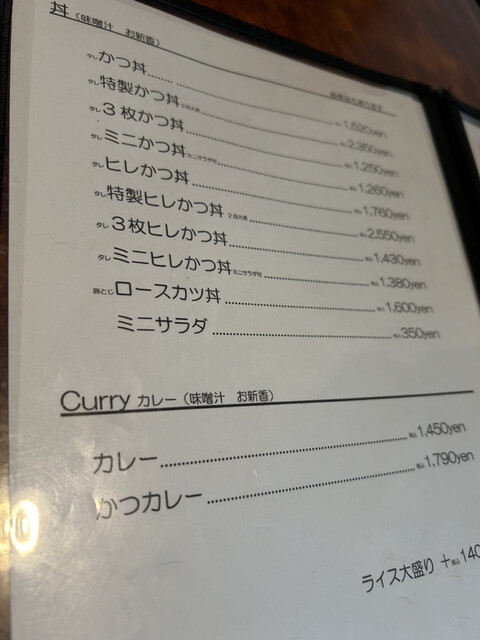 丼（味噌汁 お新香）
タレかつ丼 1,520yen
タレ特製かつ丼 2段大盛 2,350yen
タレ3枚かつ丼 1,250yen
タレミニかつ丼 ミニサラダ付 1,260yen
タレヒレかつ丼 1,760yen
タレ特製ヒレかつ丼 2段大盛 2,550yen
タレ3枚ヒレかつ丼 税込1,430yen
タレミニヒレかつ丼 ミニサラダ付 税込1,380yen
卵とじロースカツ丼 税込1,600yen
ミニサラダ 税込350yen
Curry カレー（味噌汁 お新香）
カレー 税込1,450yen
かつカレー 税込1,790yen
ライス大盛り ＋税込140